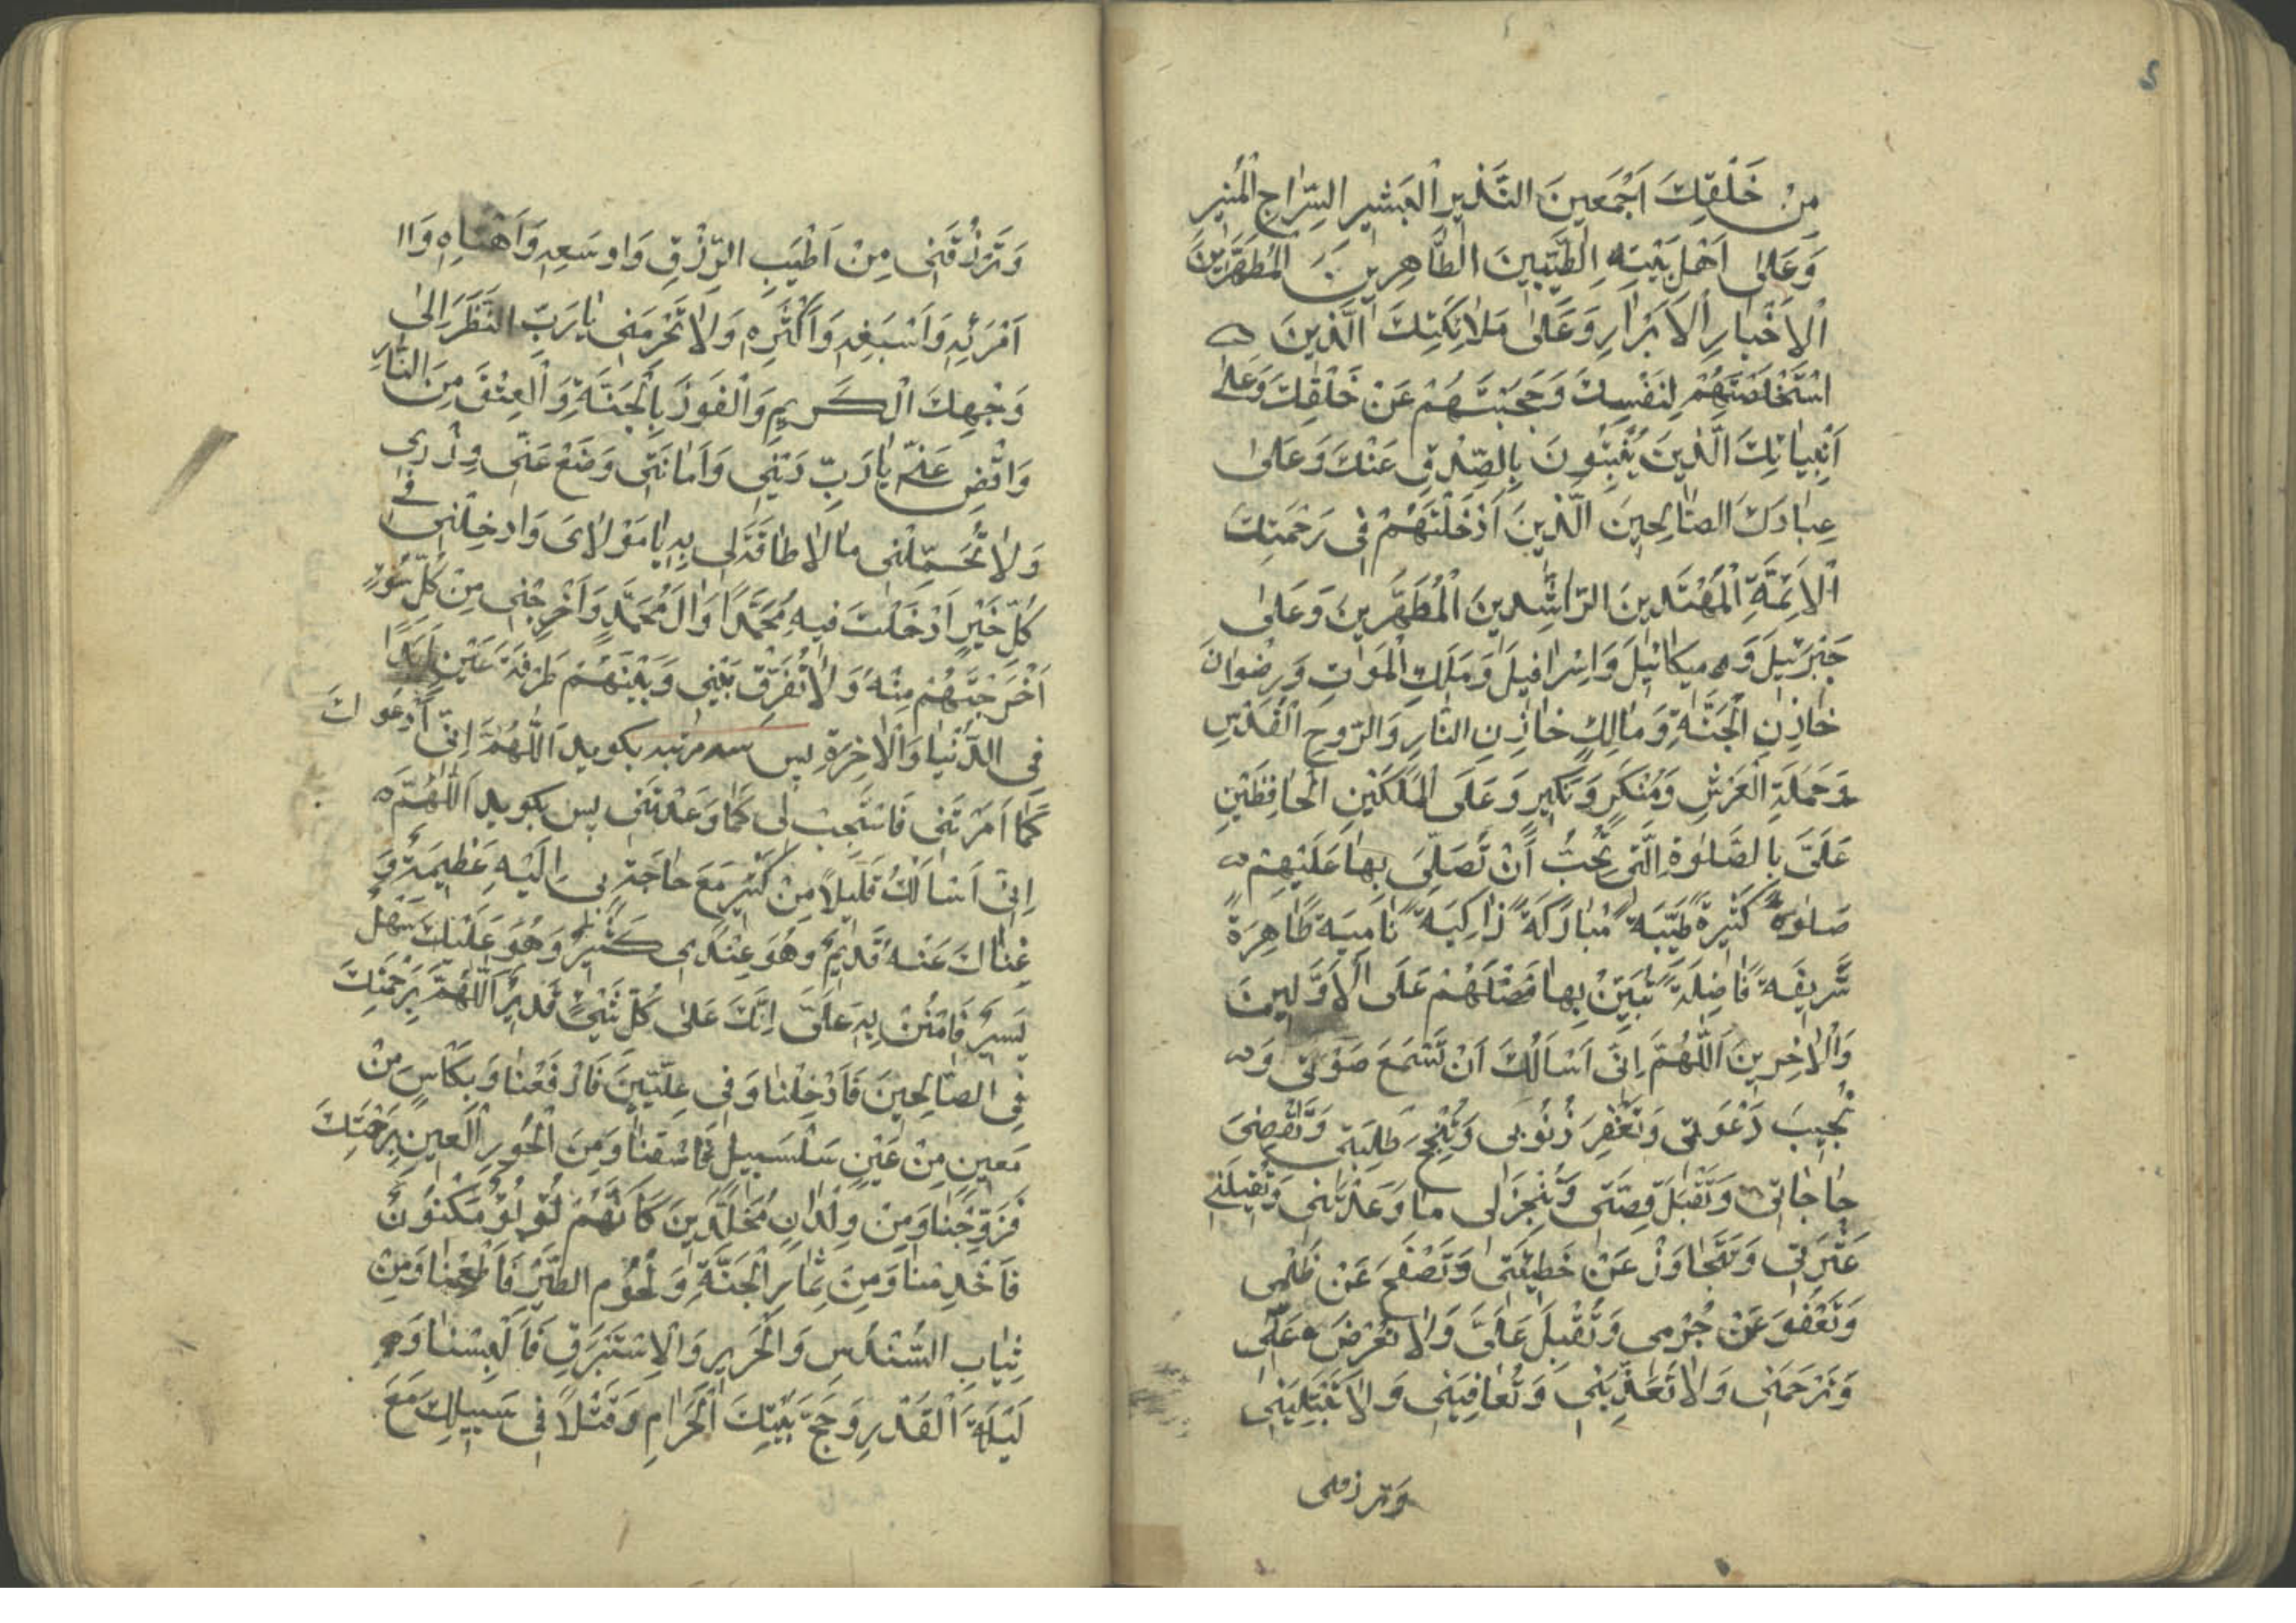 مِنْ خَلْقِكَ اَجْمَعینَ النَّذیرِ الْبَشیرِ السِّرٰاجِ الْمُنیرِ
وَعَلىٰ اَهْلِ بَیْتِهِ الطَّیِّبینَ الطّٰاهِرینَ المُطَهَّرینَ
الْاَخْیٰارِ الْاَبْرٰارِ وَعَلىٰ مَلاٰئِكَتِكَ الَّذینَ
اسْتَخْلَصْتَهُمْ لِنَفْسِكَ وَحَجَبْتَهُمْ عَنْ خَلْقِكَ وَعَلىٰ
اَنْبِیٰائِكَ الَّذینَ یُنْبِئُونَ بِالصِّدْقِ عَنْكَ وَعَلىٰ
عِبٰادِكَ الصّٰالِحینَ الَّذینَ اَدْخَلْتَهُمْ فی رَحْمَتِكَ
الْاَئِمَّةِ الْمُهْتَدینَ الرّٰاشِدینَ الْمُطَهَّرینَ وَعَلىٰ
جَبْرَئیلَ وَمیكٰائیلَ وَاِسْرٰافیلَ وَمَلَكِ الْمَوْتِ وَرِضْوٰانَ
خٰازِنِ الْجَنَّةِ وَمٰالِكٍ خٰازِنِ النّٰارِ وَالرّوحِ الْقُدُسِ
وَحَمَلَةِ الْعَرْشِ وَمُنْكَرٍ وَنَكیرٍ وَعَلَى الْمَلَكَیْنِ الْحٰافِظَیْنِ
عَلَیَّ بِالصَّلوٰةِ الَّتی تُحِبُّ اَنْ تُصَلِّیَ بِهٰا عَلَیْهِمْ
صَلوٰةً كَثیرَةً طَیِّبَةً مُبٰارَكَةً زٰاكِیَةً نٰامِیَةً طٰاهِرَةً
شَریفَةً فٰاضِلَةً تُبَیِّنُ بِهٰا فَضْلَهُمْ عَلَى الْاَوَّلینَ
وَالْاٰخِرینَ اَللّٰهُمَّ اِنّی اَسْاَلُكَ اَنْ تَسْمَعَ صَوْتی وَ
تُجیبَ دَعْوَتی وَتَغْفِرَ ذُنُوبی وَتُنْجِحَ طَلِبَتی وَتَقْضِیَ
حٰاجٰاتی وَتَقْبَلَ قِصَّتی وَتُنْجِزَ لی مٰا وَعَدْتَنی وَتُقیلَنی
عَثْرَتی وَتَتَجٰاوَزَ عَنْ خَطیئَتی وَتَصْفَحَ عَنْ ظُلْمی
وَتَعْفُوَ عَنْ جُرْمی وَتُقْبِلَ عَلَیَّ وَلاٰ تُعْرِضَ عَنّی
وَتَرْحَمَنی وَلاٰ تُعَذِّبَنی وَتُعٰافِیَنی وَلاٰ تَبْتَلِیَنی
وترزقنی
وَتَرْزُقَنی مِنْ اَطْیَبِ الرِّزْقِ وَاوسَعِهِ وَاَهْنَاِهِ وَاا
اَمْرَئِهِ وَاَسْبَغِهِ وَاَكْثَرِهِ وَلاٰ تَحْرِمَنی یٰا رَبِّ النَّظَرَ اِلىٰ
وَجْهِكَ الْكَریمِ وَالْفَوْزَ بِالْجَنَّةِ وَالْعِتْقَ مِنَ النّٰارِ
وَاقْضِ عَنّی یٰا رَبِّ دَیْنی وَاَمٰانَتی وَضَعْ عَنّی وِزْری
وَلاٰ تُحَمِّلْنی مٰا لاٰ طٰاقَةَ لی بِهِ یٰا مَوْلاٰیَ وَادخِلْنی فی
كُلِّ خَیْرٍ اَدْخَلْتَ فیهِ مُحَمَّدًا وَاٰلَ مُحَمَّدٍ وَاَخْرِجْنی مِنْ كُلِّ سُوءٍ
اَخْرَجْتَهُمْ مِنْهُ وَلاٰ تُفَرِّقْ بَیْنی وَبَیْنَهُمْ طَرْفَةَ عَیْنٍ اَبَدًا
فِی الدُّنْیٰا وَالْاٰخِرَةِ پس سه مرتبه بكوید اَللّٰهُمَّ اِنّی اَدْعُوكَ
كَمٰا اَمَرْتَنی فَاسْتَجِبْ لی كَمٰا وَعَدْتَنی پس بكوید اَللّٰهُمَّ
اِنّی اَسْاَلُكَ قَلیلاً مِنْ كَثیرٍ مَعَ حٰاجَةٍ بی اِلَیْهِ عَظیمَةٍ وَ
غِنٰاكَ عَنْهُ قَدیمٌ وَهُوَ عِنْدی كَثیرٌ وَهُوَ عَلَیْكَ سَهْلٌ
یَسیرٌ فَامْنُنْ بِهِ عَلَیَّ اِنَّكَ عَلىٰ كُلِّ شَیْءٍ قَدیرٌ اَللّٰهُمَّ بِرَحْمَتِكَ
فِی الصّٰالِحینَ فَاَدْخِلْنٰا وَفی عِلِّیّینَ فَارْفَعْنٰا وَبِكَاْسٍ مِنْ
مَعینٍ مِنْ عَیْنٍ سَلْسَبیلٍ فَاسْقِنٰا وَمِنَ الْحُورِ الْعینِ بِرَحْمَتِكَ
فَزَوِّجْنٰا وَمِنْ وِلْدٰانٍ مُخَلَّدینَ كَاَنَّهُمْ لُؤْلُؤٌ مَكْنُونٌ
فَاَخْدِمْنٰا وَمِنَ ثِمٰارِ الْجَنَّةِ وَلُحُومِ الطَّیْرِ فَاَطْعِمْنٰا وَمِنْ
ثِیٰابِ السُّنْدُسِ وَالْحَریرِ وَالْاِسْتَبْرَقِ فَاَلْبِسْنٰا وَ
لَیْلَةَ الْقَدْرِ وَحَجَّ بَیْتِكَ الْحَرٰامِ وَقَتْلاً فی سَبیلِكَ مَعَ